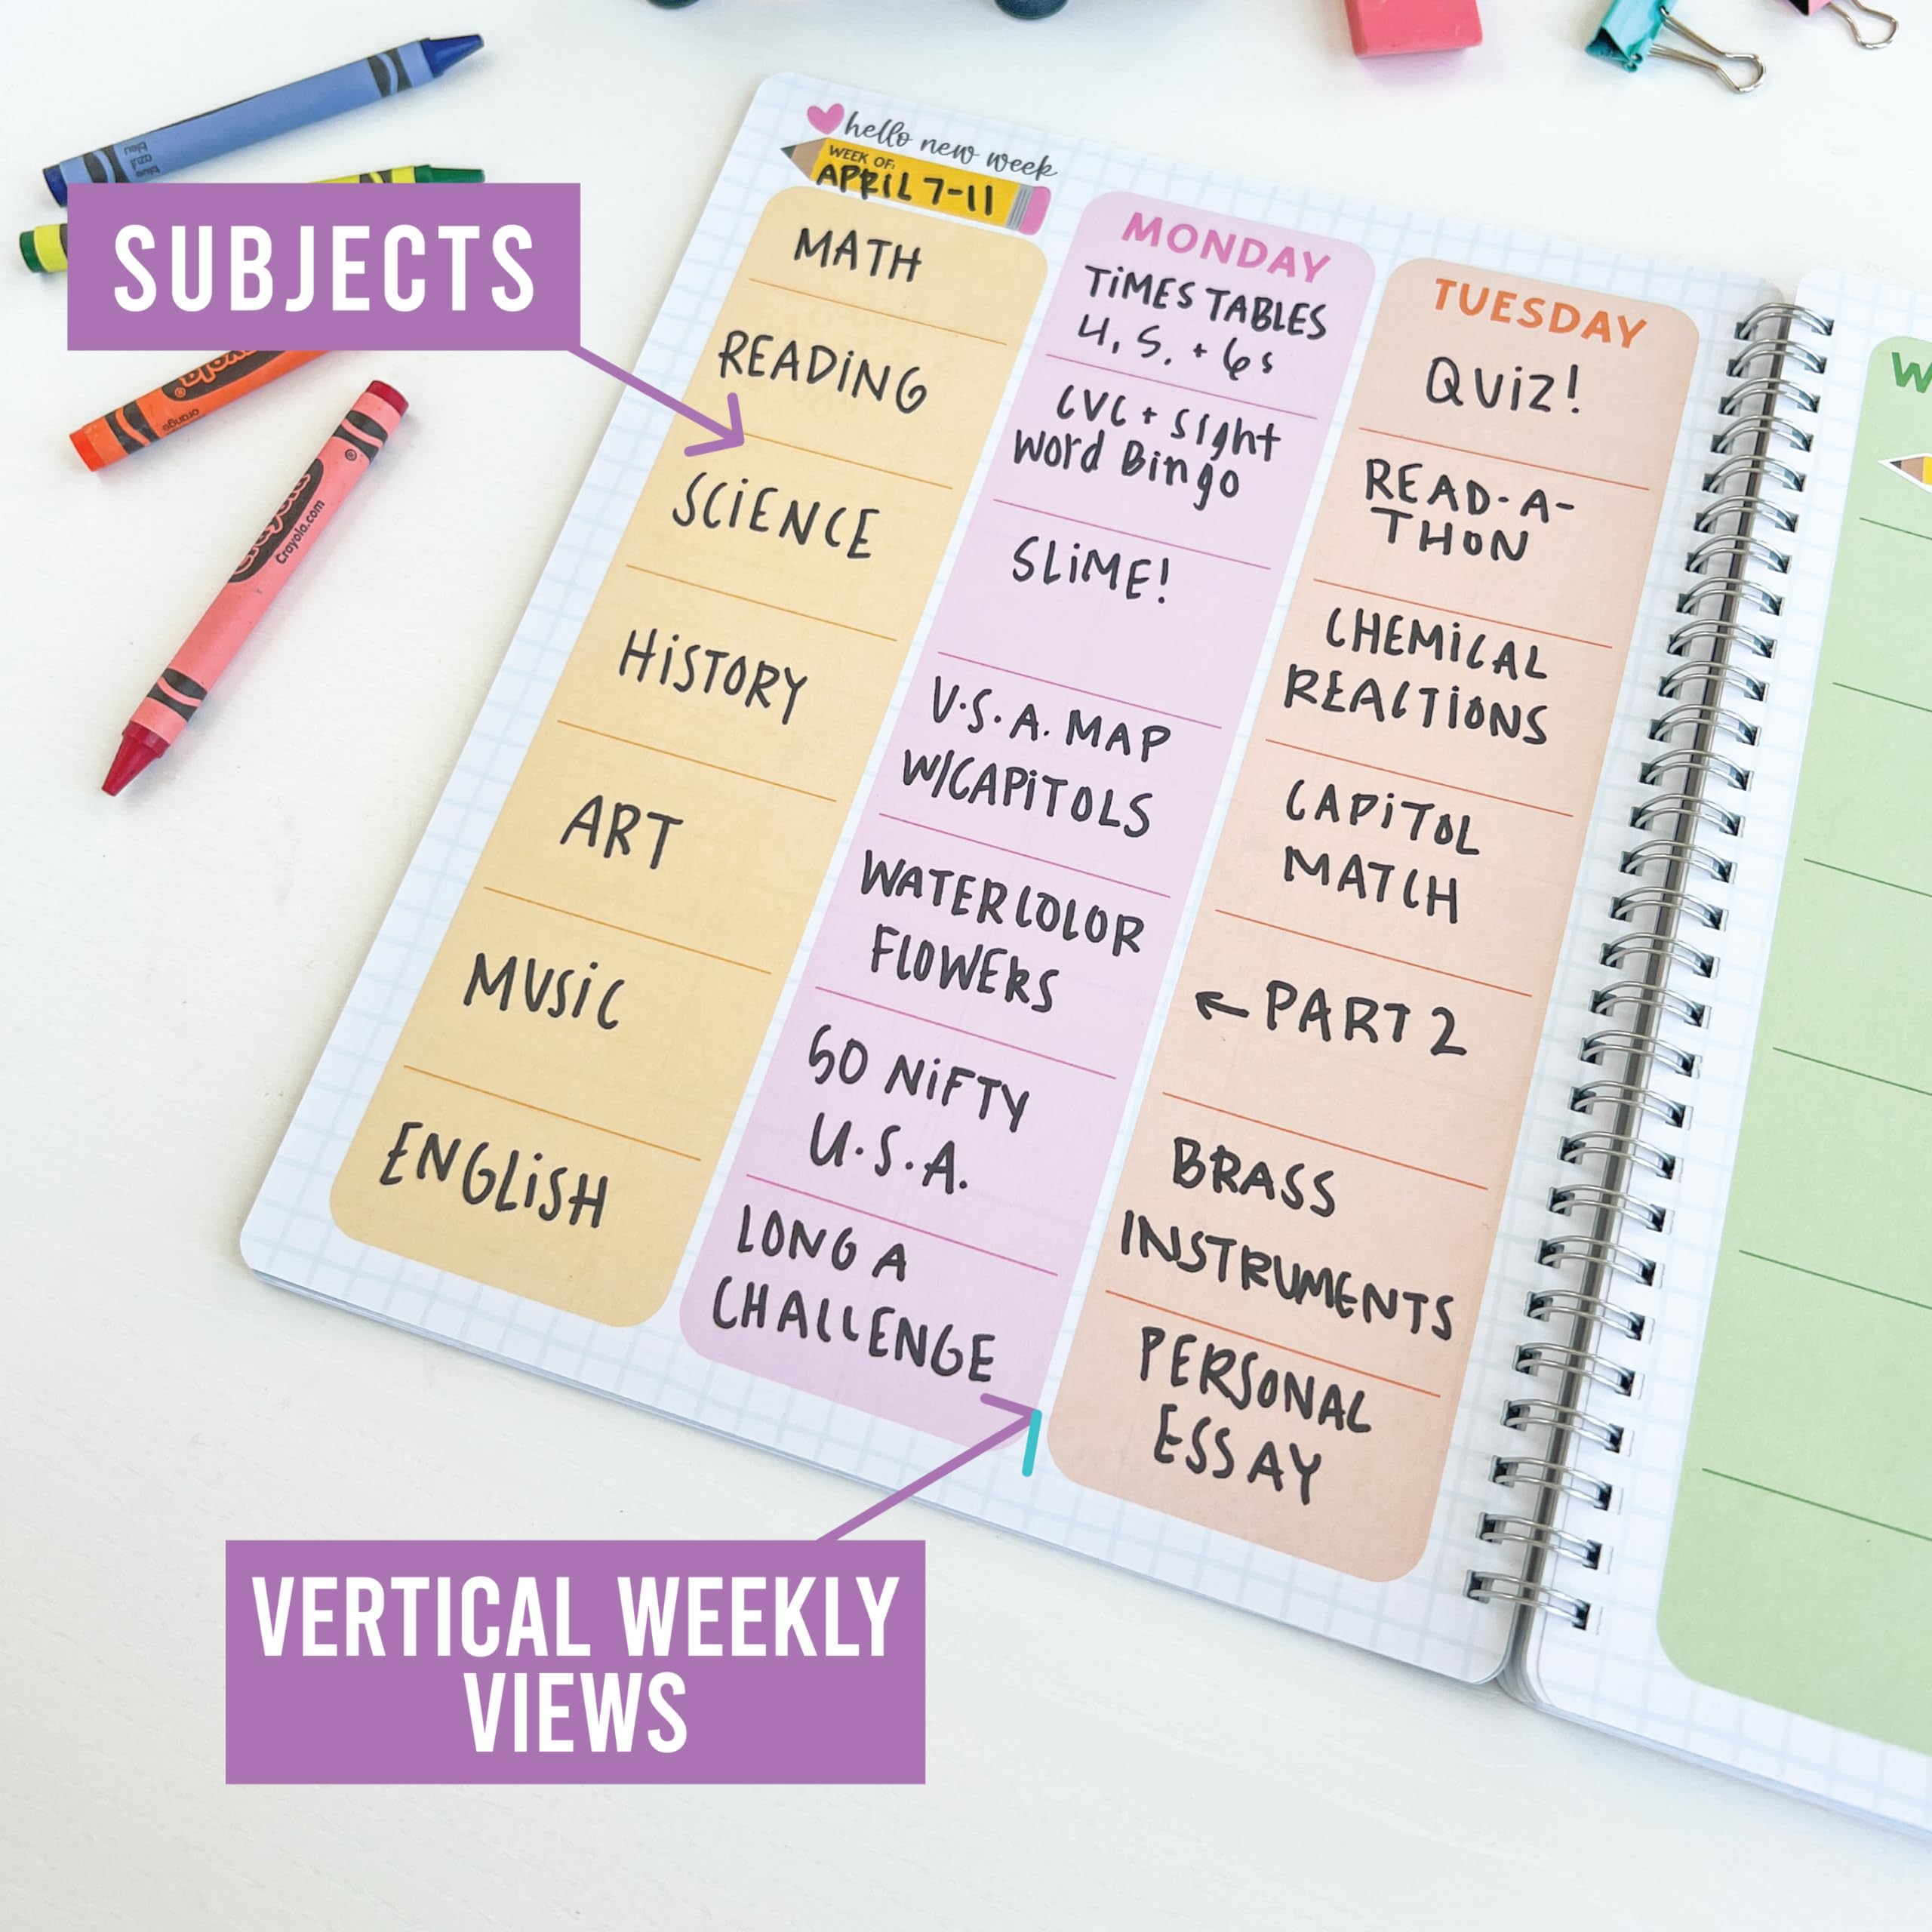 hello new week
WEEK OF:
APRIL 7-11
SUBJECTS
MATH
READING
SCIENCE
HISTORY
ART
MUSIC
ENGLISH
MONDAY
TIMES TABLES
4, 5, + 6s
CVC + Sight
Word Bingo
SLIME!
U.S.A. MAP
W/CAPITOLS
WATERCOLOR
FLOWERS
50 NIFTY
U.S.A.
LONG A
CHALLENGE
TUESDAY
QUIZ!
READ-A-
THON
CHEMICAL
REACTIONS
CAPITOL
MATCH
← PART 2
BRASS
INSTRUMENTS
PERSONAL
ESSAY
W
VERTICAL WEEKLY
VIEWS
blue
azul
bleu
orange
Crayola
Crayola.com